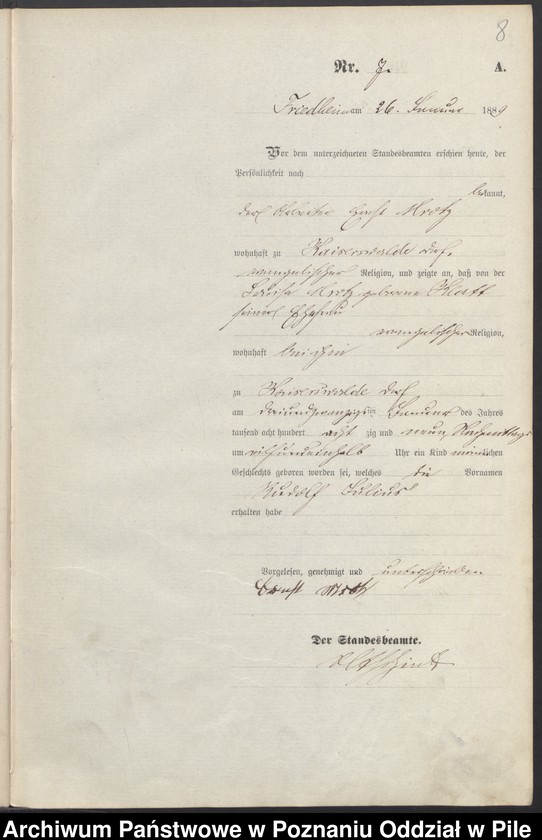 8
Nr. 7. A.
Friedheim am 26. Januar 1889
Vor dem unterzeichneten Standesbeamten erschien heute, der
Persönlichkeit nach
bekannt,
der Arbeiter Ernst Mrotz
wohnhaft zu Kaiserswalde Dorf,
evangelischer Religion, und zeigte an, daß von der
Louise Mrotz geborene Klatt
seiner Ehefrau
evangelischer Religion,
wohnhaft bei ihm
zu Kaiserswalde Dorf
am dreiundzwanzigsten Januar des Jahres
tausend acht hundert acht zig und neun, Nachmittags
um Uhr ein Kind männlichen
Geschlechts geboren worden sei, welches die Vornamen
Rudolf Julius
erhalten habe
Vorgelesen, genehmigt und unterschrieben
Ernst Mrotz
Der Standesbeamte.
Archiwum Państwowe w Poznaniu Oddział w Pile